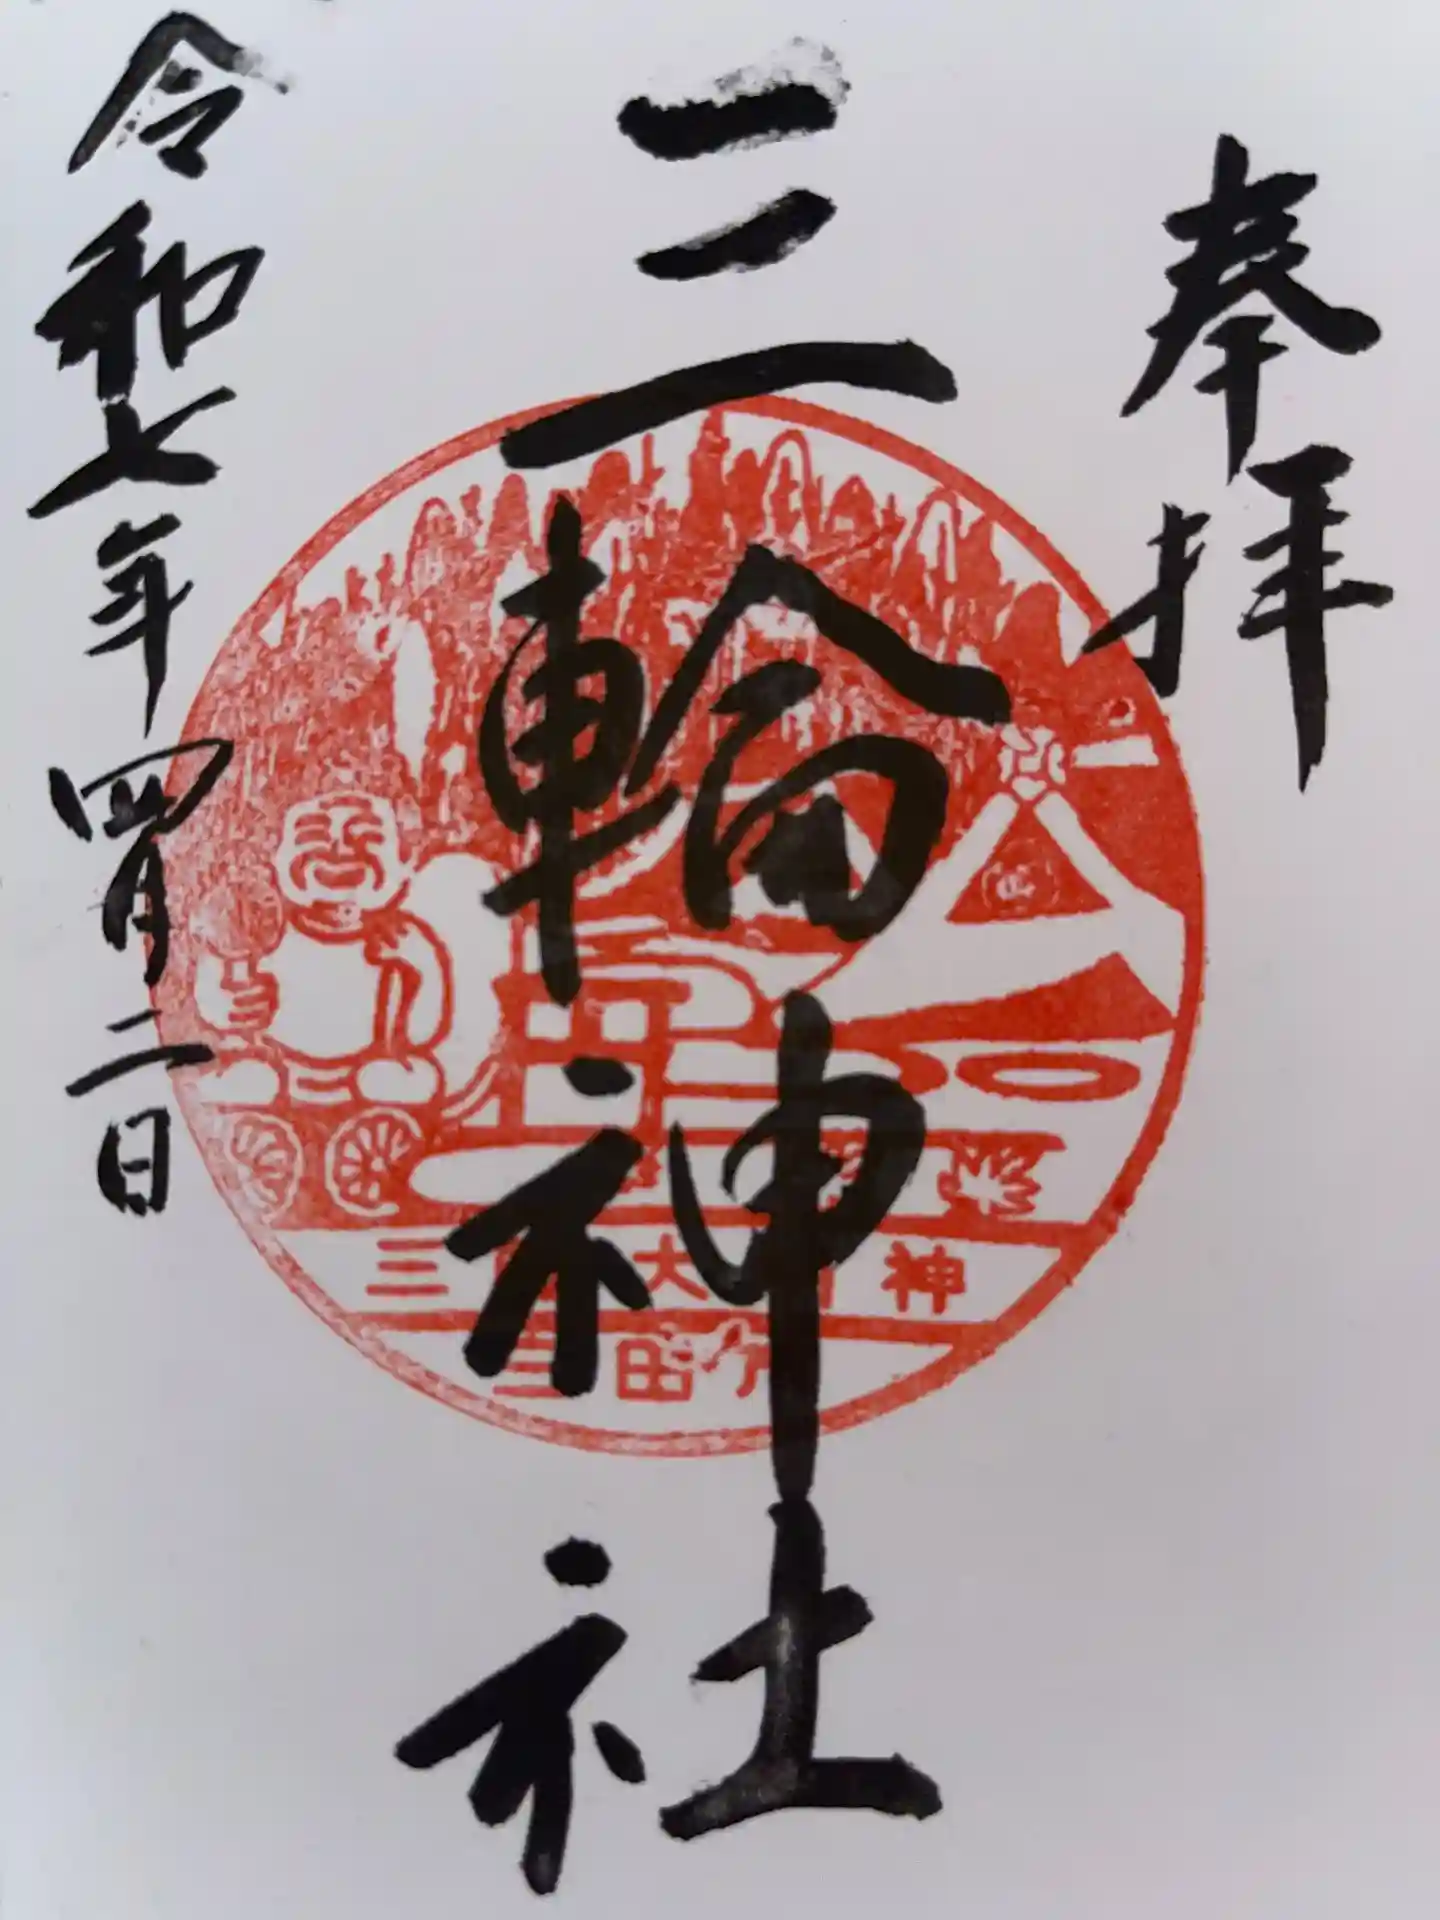 奉拝
三輪神社
令和七年四月二日
三 大 神
三田